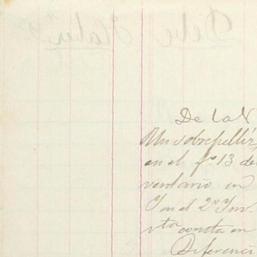 De la V
Un sobrepelliz
en el fº 13 de
ventario in
Y en el 2º Ynv
consta en
Diferenci